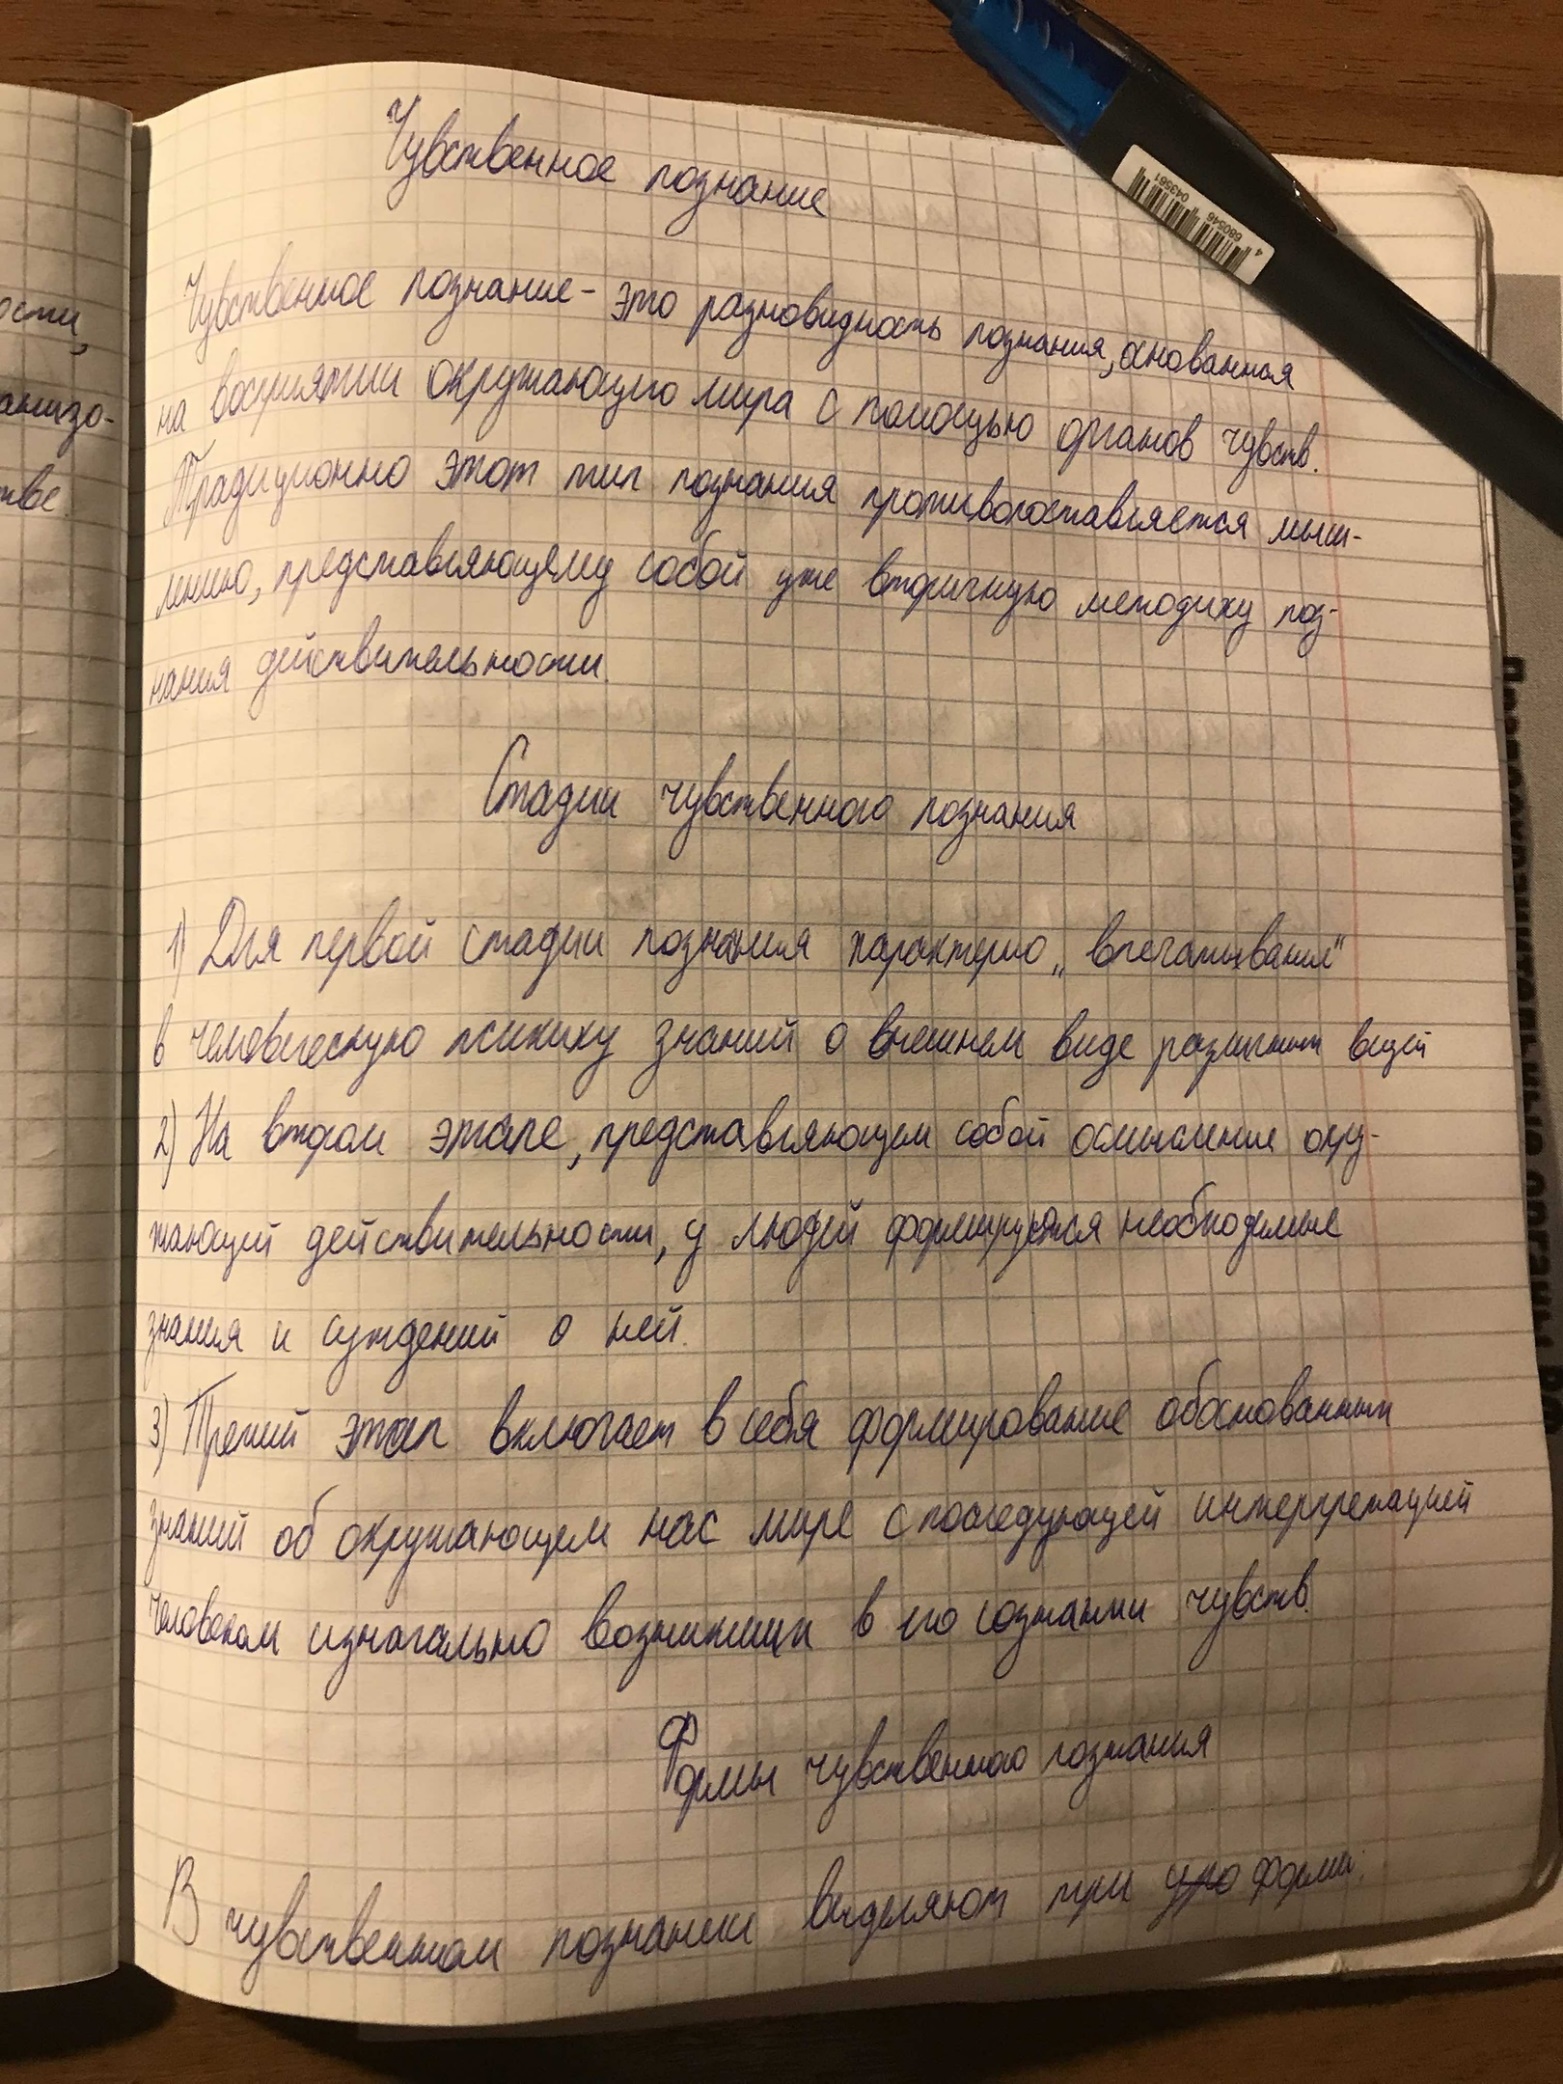 Чувственное познание
Чувственное познание - это разновидность познания, основанная
на восприятии окружающего мира с помощью органов чувств.
Традиционно этот тип познания противопоставляется мыш-
лению, представляющему собой уже вторичную методику поз-
нания действительности.
Стадии чувственного познания
1) Для первой стадии познания характерно „впечатывания“
в человеческую психику знаний о внешнем виде различных вещей
2) На втором этапе, представляющем собой осмысление окру-
жающей действительности, у людей формируются необходимые
знания и суждений о ней.
3) Третий этап включает в себя формирование обоснованных
знаний об окружающем нас мире с последующей интерпретацией
человеком изначально возникших в его сознании чувств.
Формы чувственного познания
В чувственном познании выделяют три формы:
ости,
анизо-
тве.
4 680546 043561